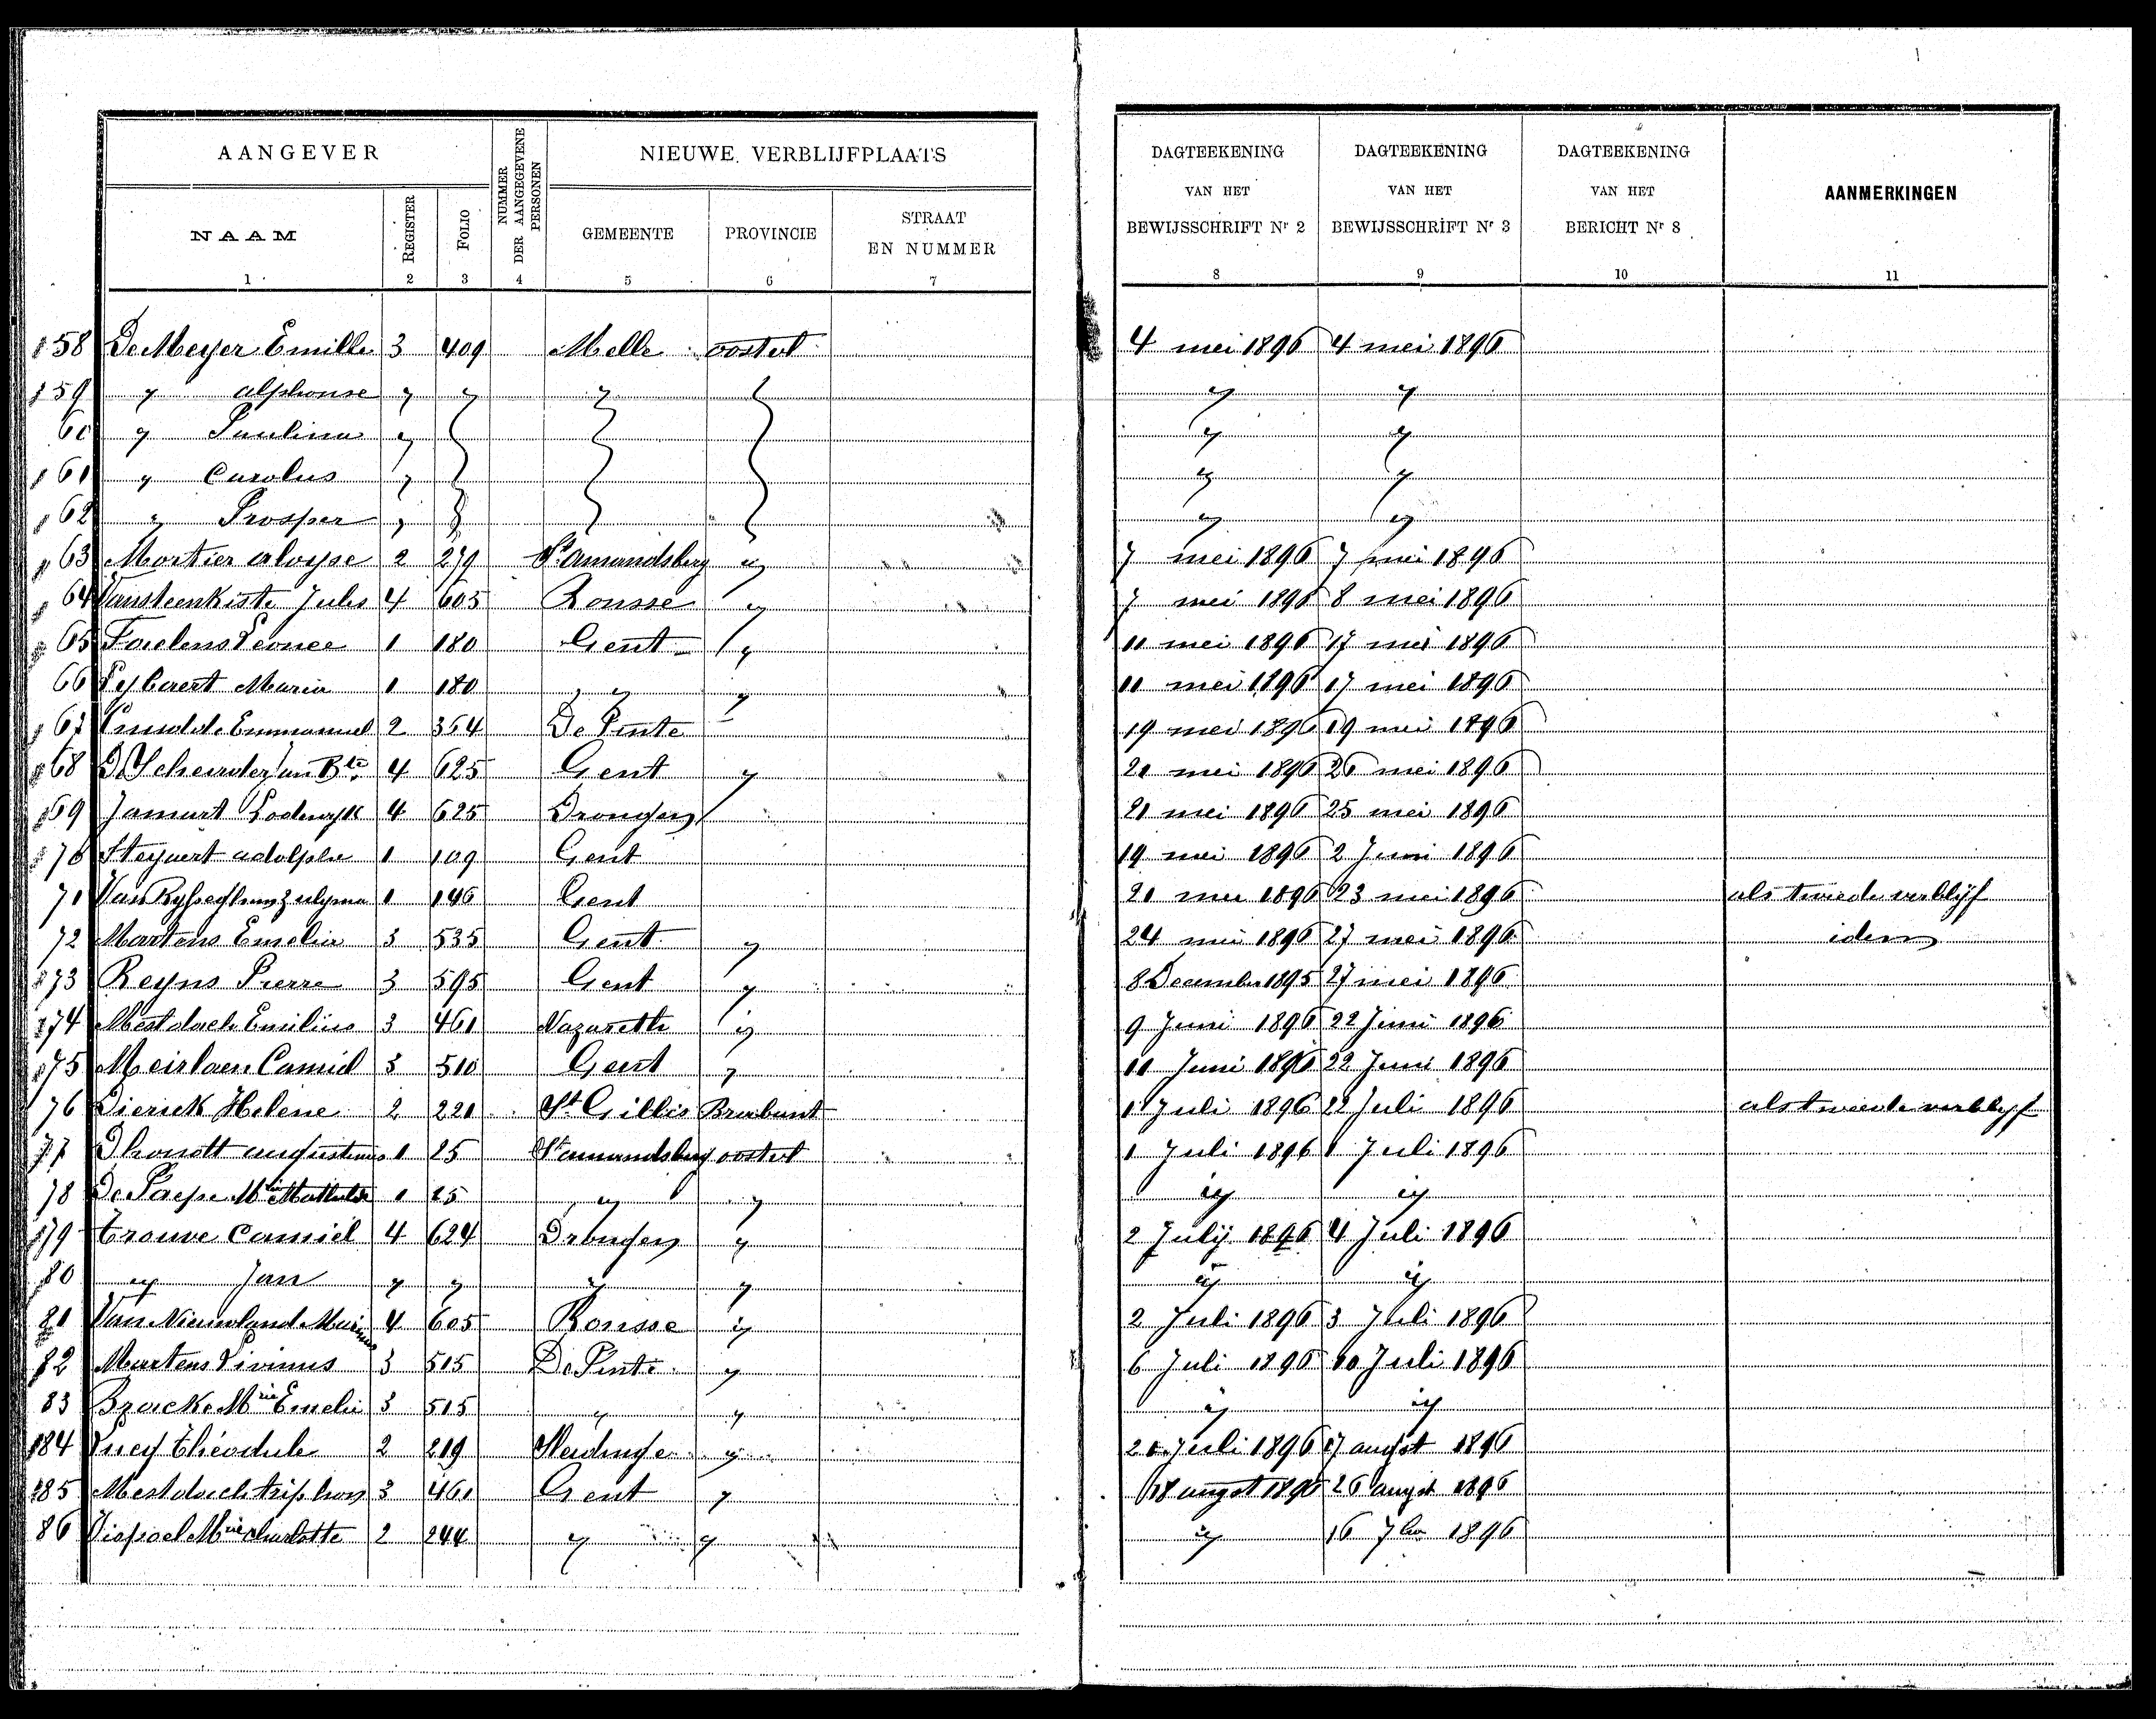 AANGEVER
NUMMER DER AANGEGEVENE PERSONEN
NIEUWE VERBLIJFPLAATS
DAGTEEKENING VAN HET BEWIJSSCHRIFT Nr 2
DAGTEEKENING VAN HET BEWIJSSCHRIFT Nr 3
DAGTEEKENING VAN HET BERICHT Nr 8
AANMERKINGEN
NAAM
REGISTER
FOLIO
GEMEENTE
PROVINCIE
STRAAT EN NUMMER
1 2 3 4 5 6 7 8 9 10 11
158 De Meyer Emille 3 409 Melle oostvl 4 mei 1896 4 mei 1896
159 " alphonse " " " " "
60 " Paulina " " "
161 " Carolus " " "
162 " Prosper " " "
163 Mortier aloyse 2 279 St amandsberg " 7 mei 1896 7 mei 1896
164 Vansteenkiste Jules 4 605 Ronsse " 7 mei 1896 8 mei 1896
165 Leonce 1 180 Gent " 11 mei 1896 17 mei 1896
66 Maria 1 180 " " 11 mei 1896 17 mei 1896
167 Emmanuel 2 354 De Pinte 19 mei 1896 19 mei 1896
168 4 625 Gent " 21 mei 1896 26 mei 1896
169 Lodewyk 4 625 Drongen 21 mei 1896 25 mei 1896
170 Steyaert adolphe 1 109 Gent 19 mei 1896 2 Juni 1896
71 Van 1 146 Gent 21 mei 1896 23 mei 1896 als tweede verblijf
72 Martens Emelia 3 535 Gent " 24 mei 1896 27 mei 1896 idem
173 Reyns Pierre 3 595 Gent " 8 December 1895 27 mei 1896
174 Mestdach Emilius 3 461 Nazareth " 9 Juni 1896 22 Juni 1896
175 Meirlaen Camiel 3 510 Gent " 11 Juni 1896 22 Juni 1896
76 Dierick Helene 2 221 St Gillis Brabant 1 Juli 1896 22 Juli 1896 als tweede verblyf
77 Dhondt augustinus 1 25 St amandsberg oostvl 1 Juli 1896 1 Juli 1896
78 De Paepe Mie Mathilde 1 25 " " " "
179 Trouve Camiel 4 624 Drongen " 2 July 1896 4 Juli 1896
80 " Jan " " " " " "
81 Van Nieuwland 4 605 Ronsse " 2 Juli 1896 3 Juli 1896
82 Martens Livinus 3 515 De Pinte " 6 Juli 1896 10 Juli 1896
83 Mie Emelie 3 515 " " " "
184 Théodule 2 219 " Juli 1896 17 augst 1896
185 Mestdach 3 461 Gent " 18 augst 1896 26 augst 1896
86 Mie charlotte 2 244 " " " 16 7ber 1896